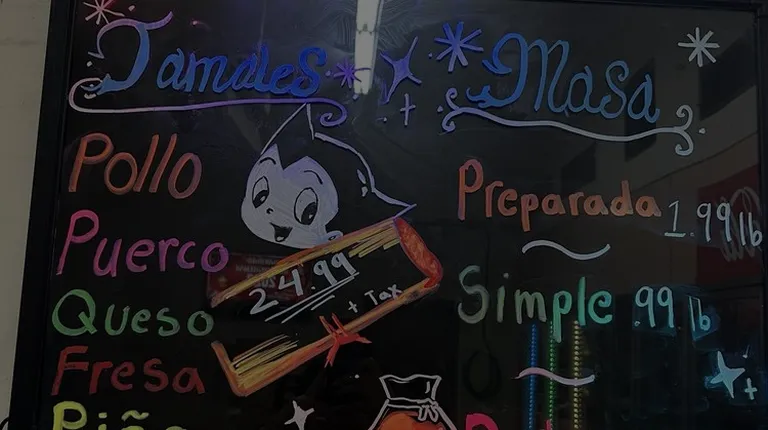 Tamales
Pollo
Puerco
Queso
Fresa
Piña
24.99
+ Tax
Masa
Preparada 1.99 lb
Simple .99 lb